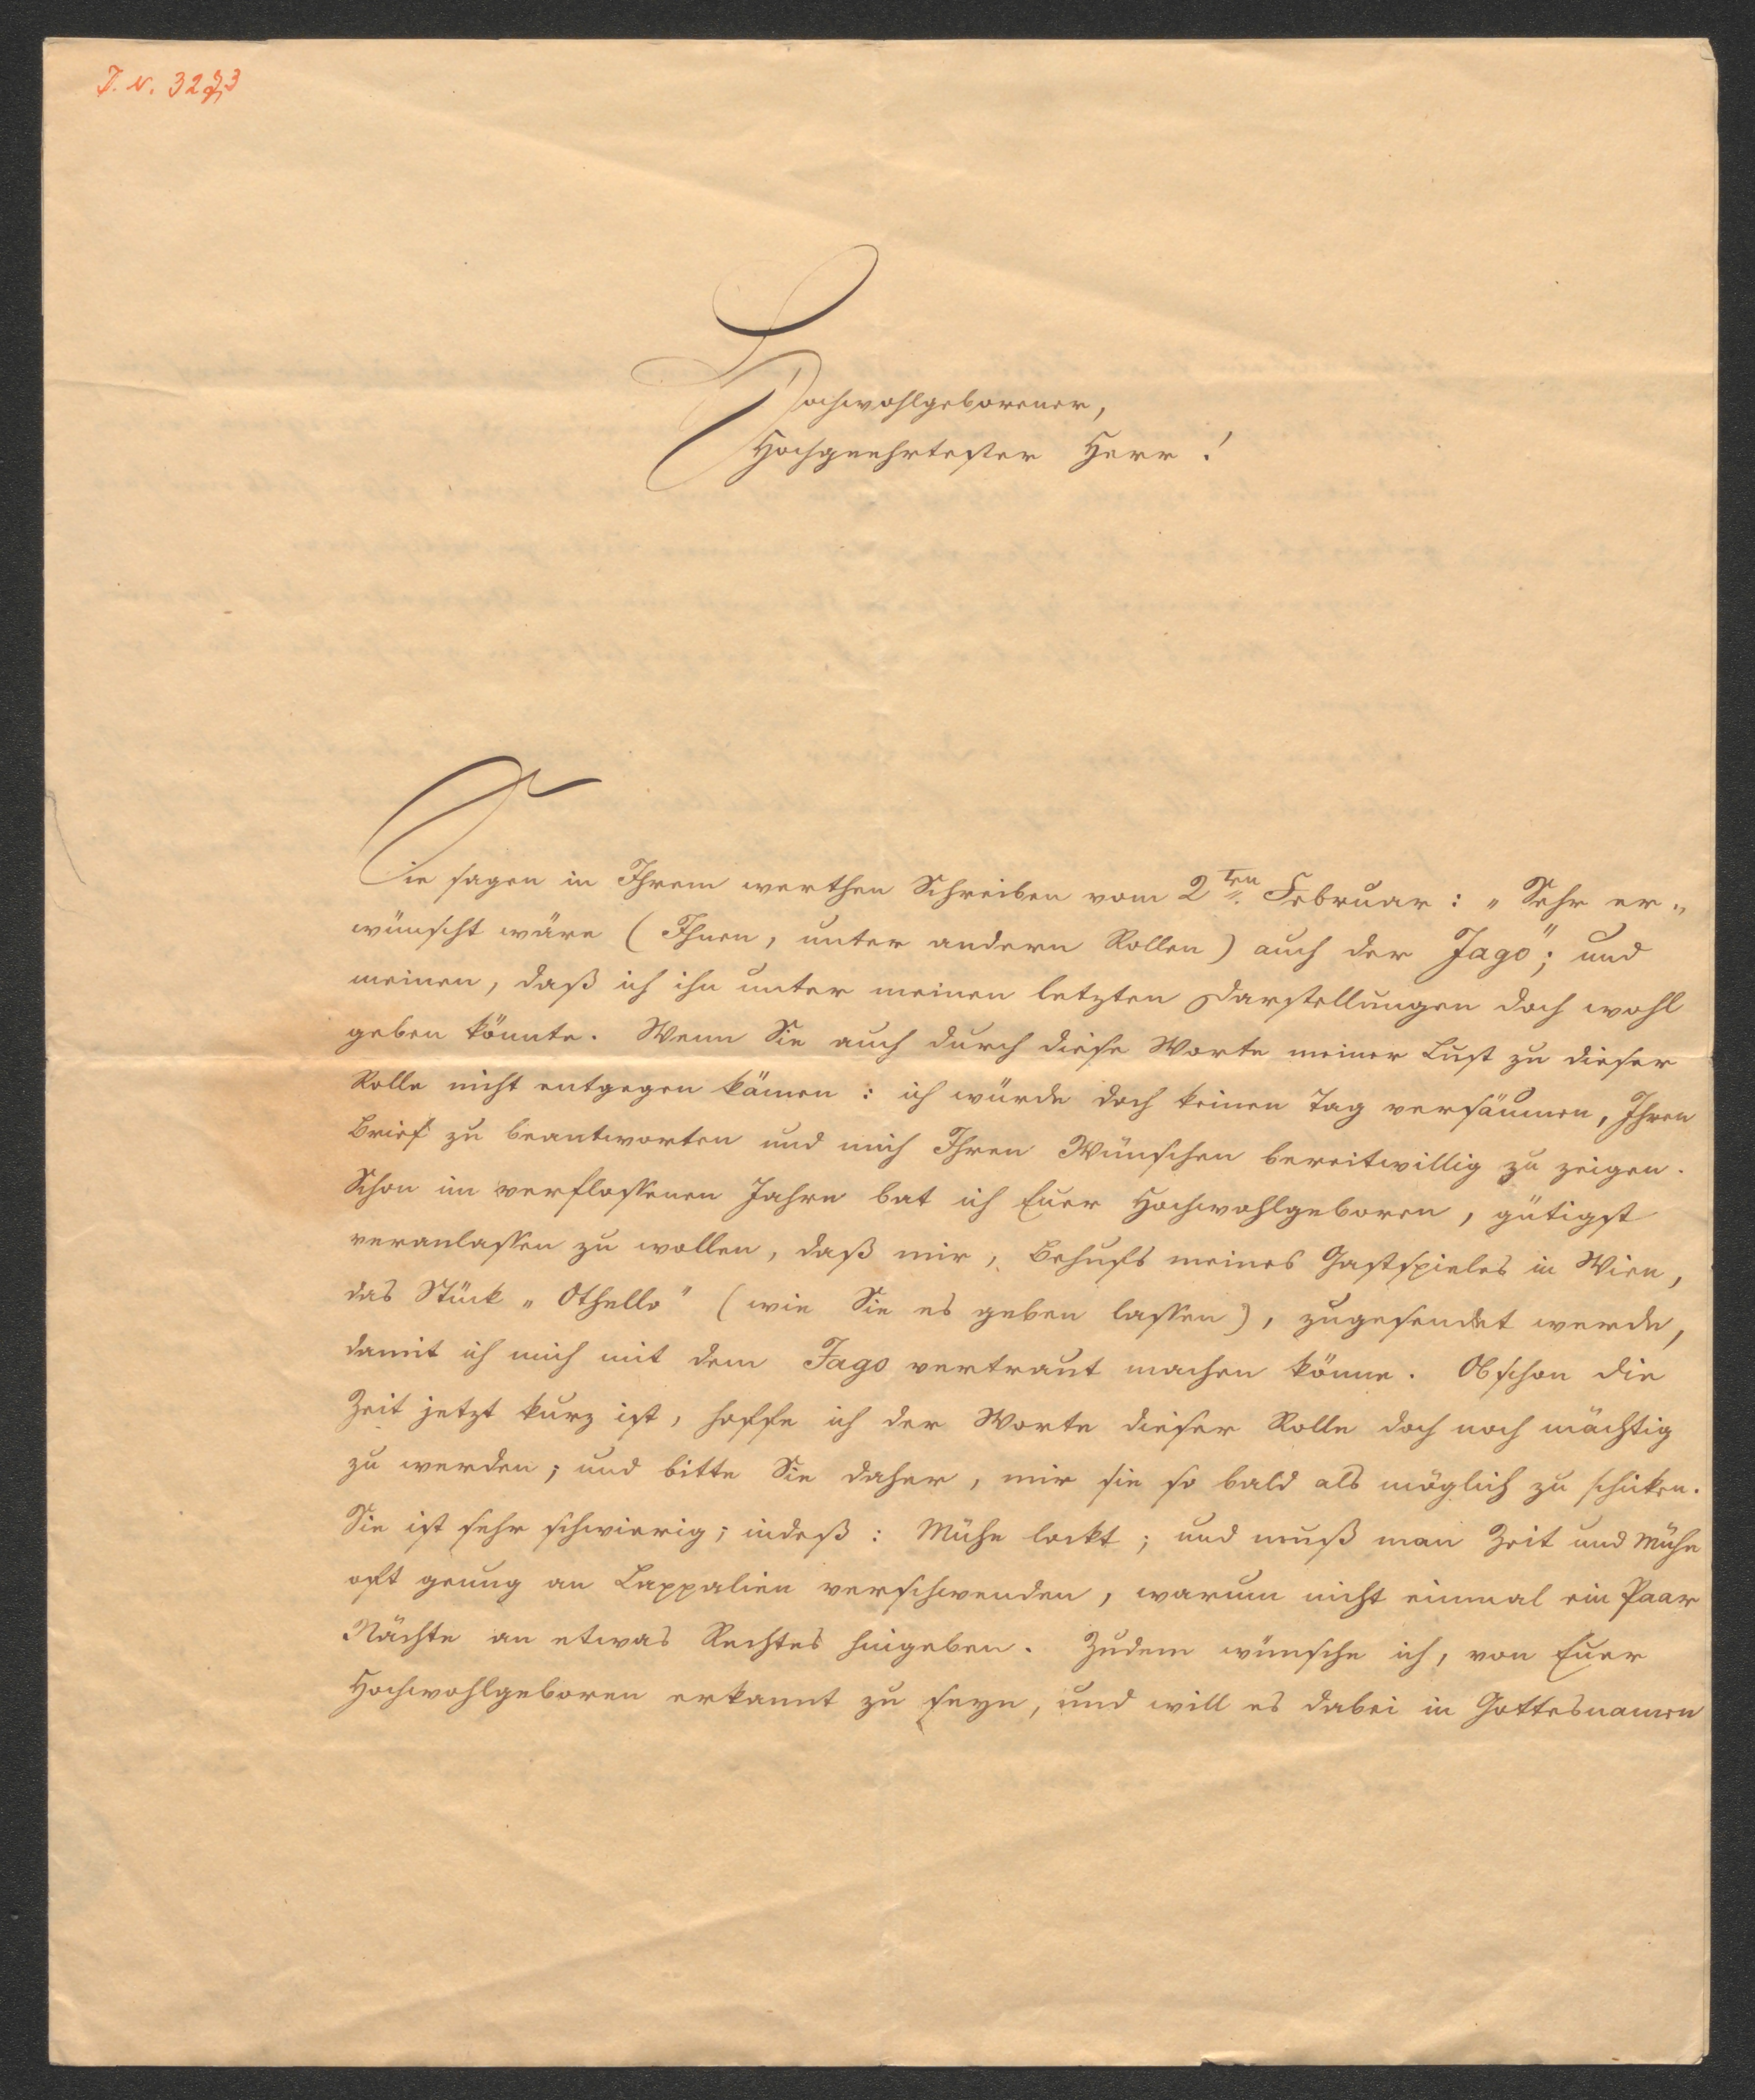 Hochwohlgeborener,
Hochgeehrtester Herr!
Sie sagen in Ihrem werthen Schreiben vom 2ten Februar: „Sehr er„
wünscht wäre (Ihnen, unter andern Rollen) auch der Jago“; und
meinen, daß ich ihn unter meinen letzten Darstellungen doch wohl
geben könnte. Wenn Sie auch durch diese Worte meiner Lust zu dieser
Rolle nicht entgegen kämen: ich würde doch keinen Tag versäumen, Ihren
Brief zu beantworten und mich Ihren Wünschen bereitwillig zu zeigen.
Schon im verflossenen Jahre bat ich Euer Hochwohlgeboren, gütigst
veranlassen zu wollen, daß mir, Behufs meines Gastspieles in Wien,
das Stück „Othello“ (wie Sie es geben lassen), zugesendet werde,
damit ich mich mit dem Jago vertraut machen könne. Obschon die
Zeit jetzt kurz ist, hoffe ich der Worte dieser Rolle doch noch mächtig
zu werden; und bitte Sie daher, mir sie so bald als möglich zu schicken.
Sie ist sehr schwierig; indeß: Mühe lockt; und muß man Zeit und Mühe
oft genug an Lappalien verschwenden, warum nicht einmal ein Paar
Nächte an etwas Rechtes hingeben. Zudem wünsche ich, von Euer
Hochwohlgeboren erkannt zu seyn, und will es dabei in Gottesnamen